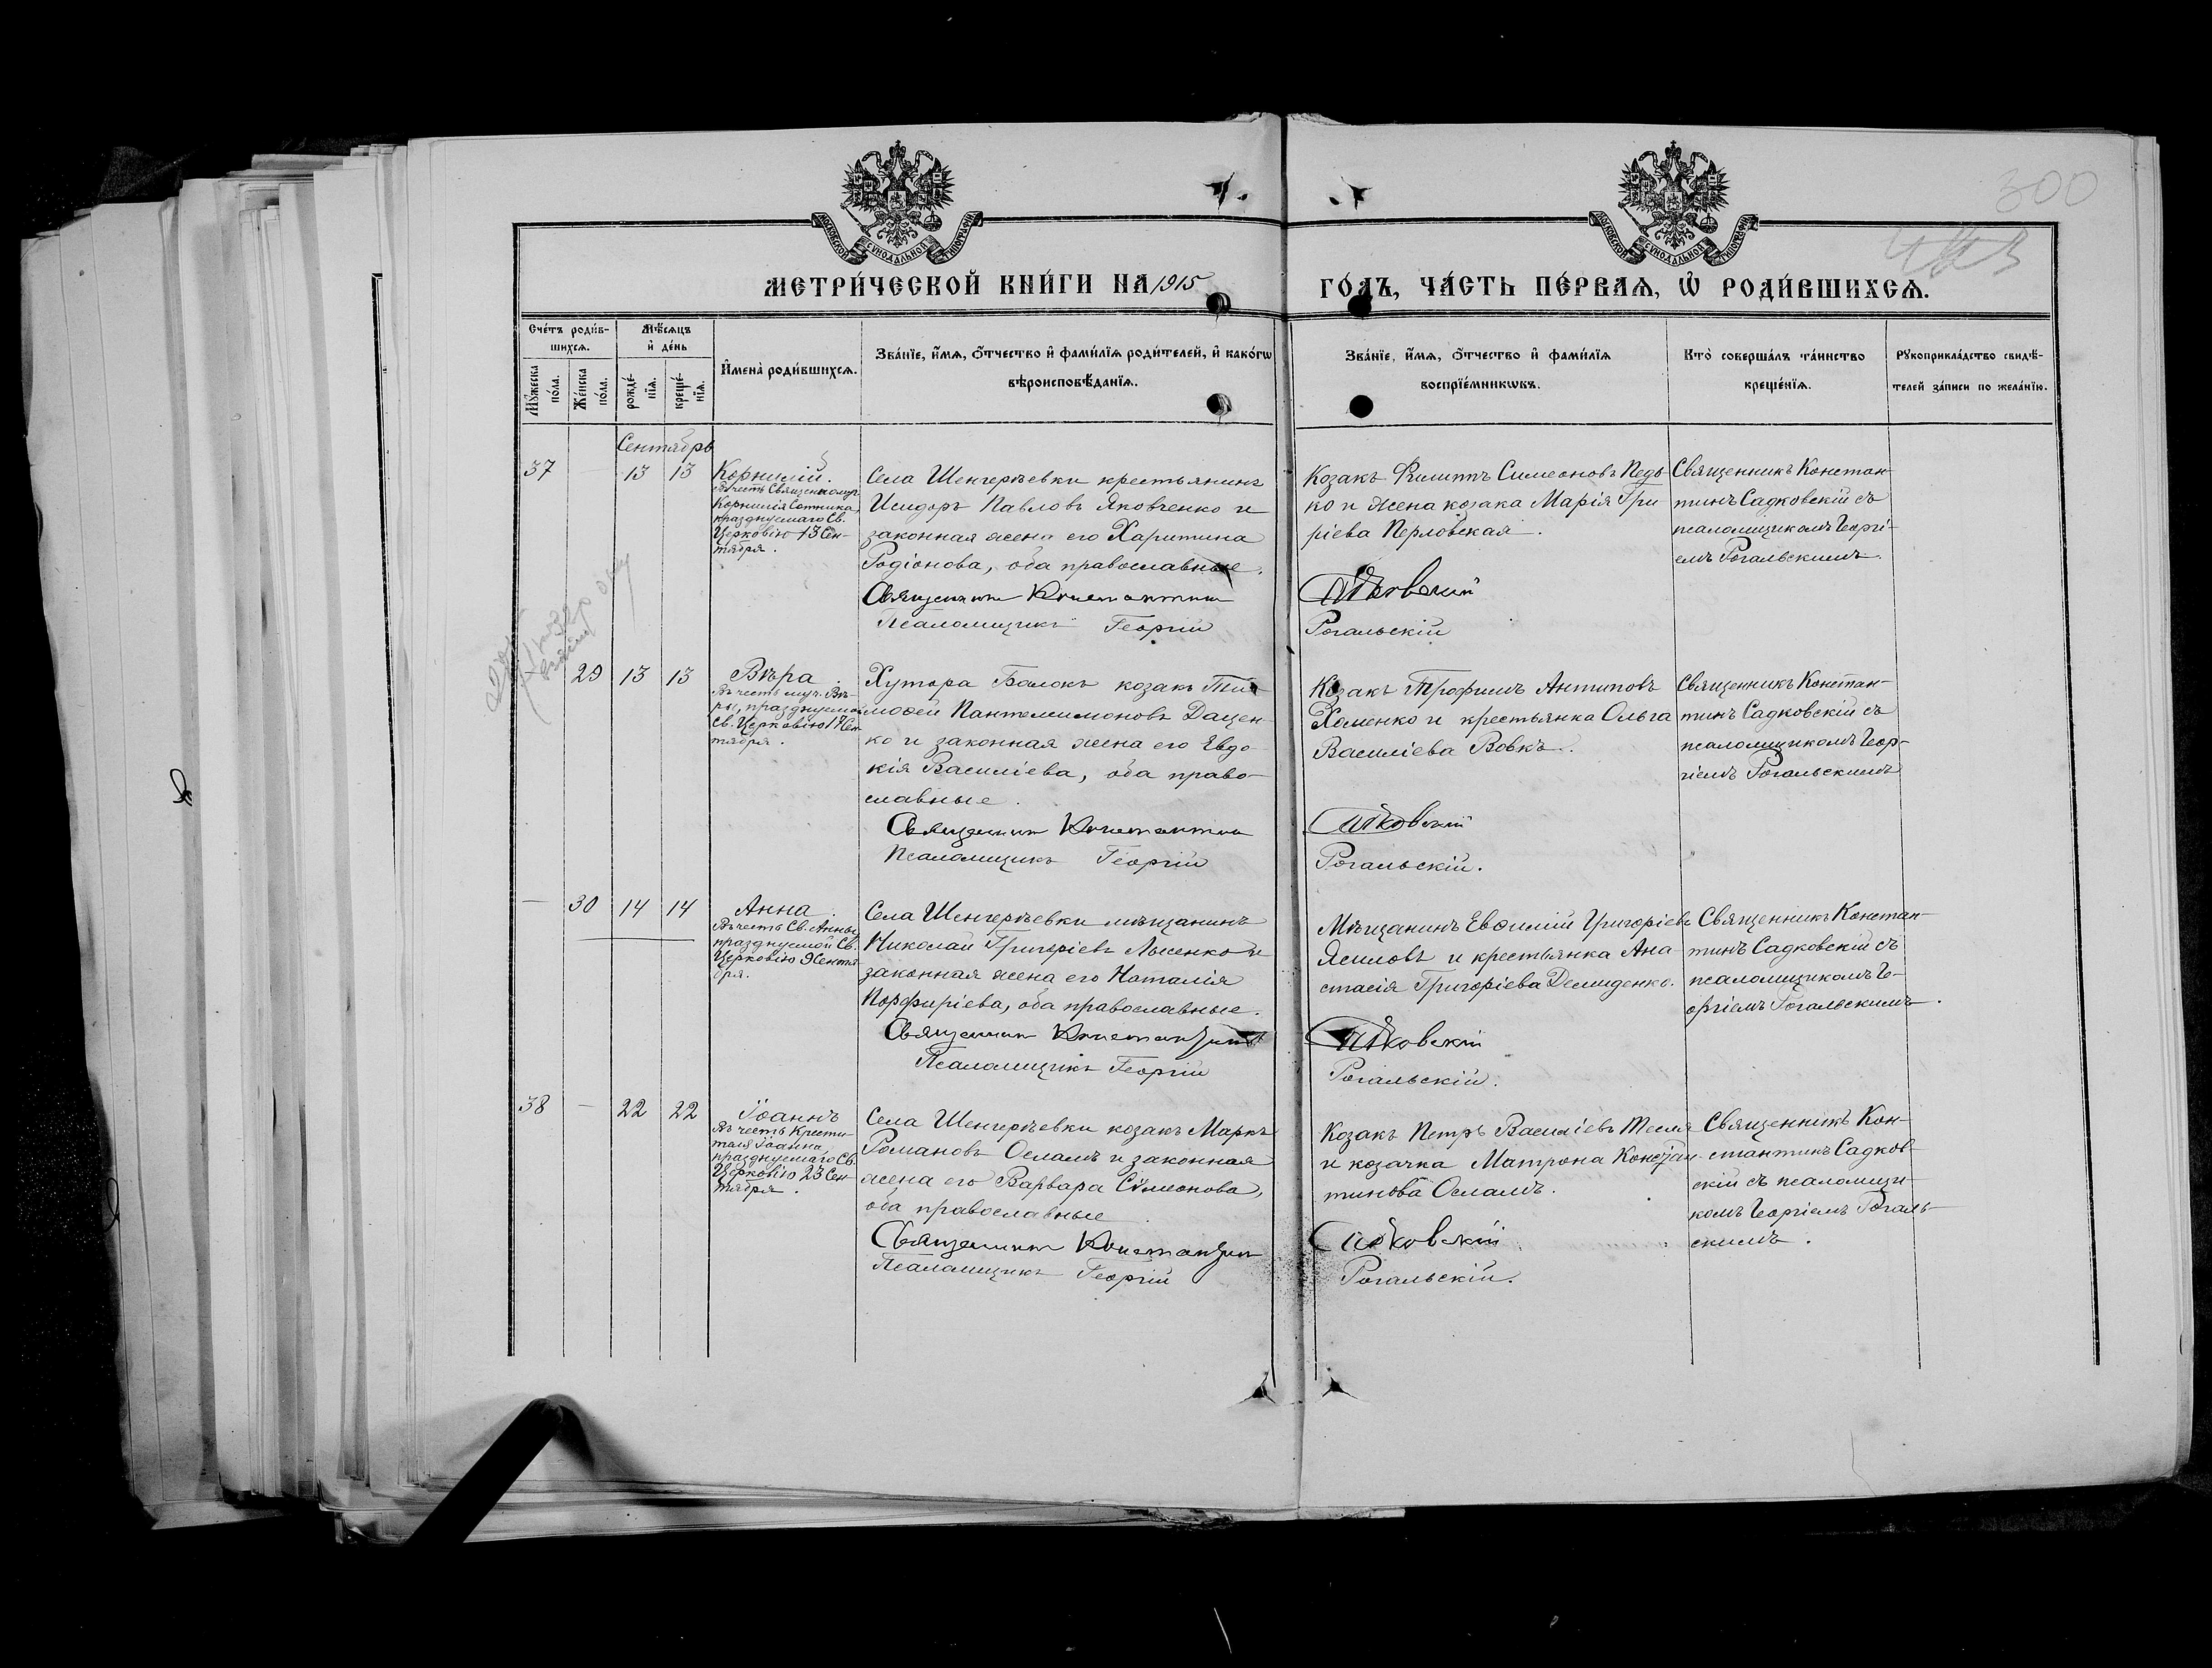 300
МЕТРИ́ЧЕСКОЙ КНИ́ГИ НА 1915 ГО́ДЪ, ЧА́СТЬ ПЕ́РВАѦ, Ѿ РОДИ́ВШИХСѦ.
МОСКОВСКОЙ СѴНОДАЛЬНОЙ ТИПОГРАФІИ
МОСКОВСКОЙ СѴНОДАЛЬНОЙ ТИПОГРАФІИ
Сче́тъ роди́в-
шихсѧ.
Мꙋ́жеска по́ла.
Же́нска по́ла.
Мѣ́сѧцъ
и҆ де́нь
рожде́-
нїѧ.
креще́-
нїѧ.
И҆мена̀ роди́вшихсѧ.
Зва́нїе, и҆́мѧ, ѻ҆́тчество и҆ фами́лїѧ роди́телей, и҆ како́гѡ
вѣроисповѣ́данїѧ.
Зва́нїе, и҆́мѧ, ѻ҆́тчество и҆ фами́лїѧ
воспрїе́мникѡвъ.
Кто̀ соверша́лъ та́инство
креще́нїѧ.
Рꙋкоприкла́дство свидѣ́-
телей за́писи по жела́нїю.
Сентябрь
37 — 13 13
Корнилій.
Въ честь Священномуч.
Корнилія Сотника,
празднуемаго Св.
Церковію 13 Сен-
тября.
Села Шенгерѣевки крестьянинъ
Исидоръ Павловъ Яковченко и
законная жена его Харитина
Родіонова, оба православные.
Священникъ Константинъ
Псаломщикъ Георгій
Козакъ Филиппъ Симеоновъ Педь
ко и жена козака Марія Гри
ріева Перловская.
Садковскій
Рогальскій
Священникъ Констан-
тинъ Садковскій съ
псаломщикомъ Георгі-
емъ Рогальскимъ.
— 29 13 13
Вѣра.
Въ честь муч. Вѣ-
ры, празднуемой
Св. Церковію 17 Сен
тября.
Хутора Балокъ козакъ Тим
моѳей Пантелеимоновъ Дацен-
ко и законная жена его Евдо-
кія Василіева, оба право-
славные.
Священникъ Константинъ
Псаломщикъ Георгій
Козакъ Трофимъ Антиповъ
Хоменко и крестьянка Ольга
Василіева Вовкъ.
Садковскій
Рогальскій.
Священникъ Констан-
тинъ Садковскій съ
псаломщикомъ Геор-
гіемъ Рогальскимъ
— 30 14 14
Анна.
Въ честь Св. Анны,
празднуемой Св.
Церковію 9 Сентя
бря.
Села Шенгерѣевки мѣщанинъ
Николай Григоріевъ Лысенко и
законная жена его Наталія
Порфиріева, оба православные.
Священникъ Константинъ
Псаломщикъ Георгій
Мѣщанинъ Евѳимій Григоріевъ
Ясиловъ и крестьянка Ана-
стасія Григоріева Демиденко.
Садковскій
Рогальскій.
Священникъ Констан-
тинъ Садковскій съ
псаломщикомъ Ге-
оргіемъ Рогальскимъ.
38 — 22 22
Іоаннъ
Въ честь Крести-
теля Іоанна,
празднуемаго Св.
Церковію 23 Сен
тября.
Села Шенгерѣевки козакъ Маркъ
Романовъ Осламъ и законная
жена его Варвара Симеонова,
оба православные.
Священникъ Константинъ
Псаломщикъ Георгій
Козакъ Петръ Василіевъ Тесля
и козачка Матрона Констан-
тинова Осламъ.
Садковскій
Рогальскій.
Священникъ Кон-
стантинъ Садков-
скій съ псаломщи-
комъ Георгіемъ Рогаль-
скимъ.